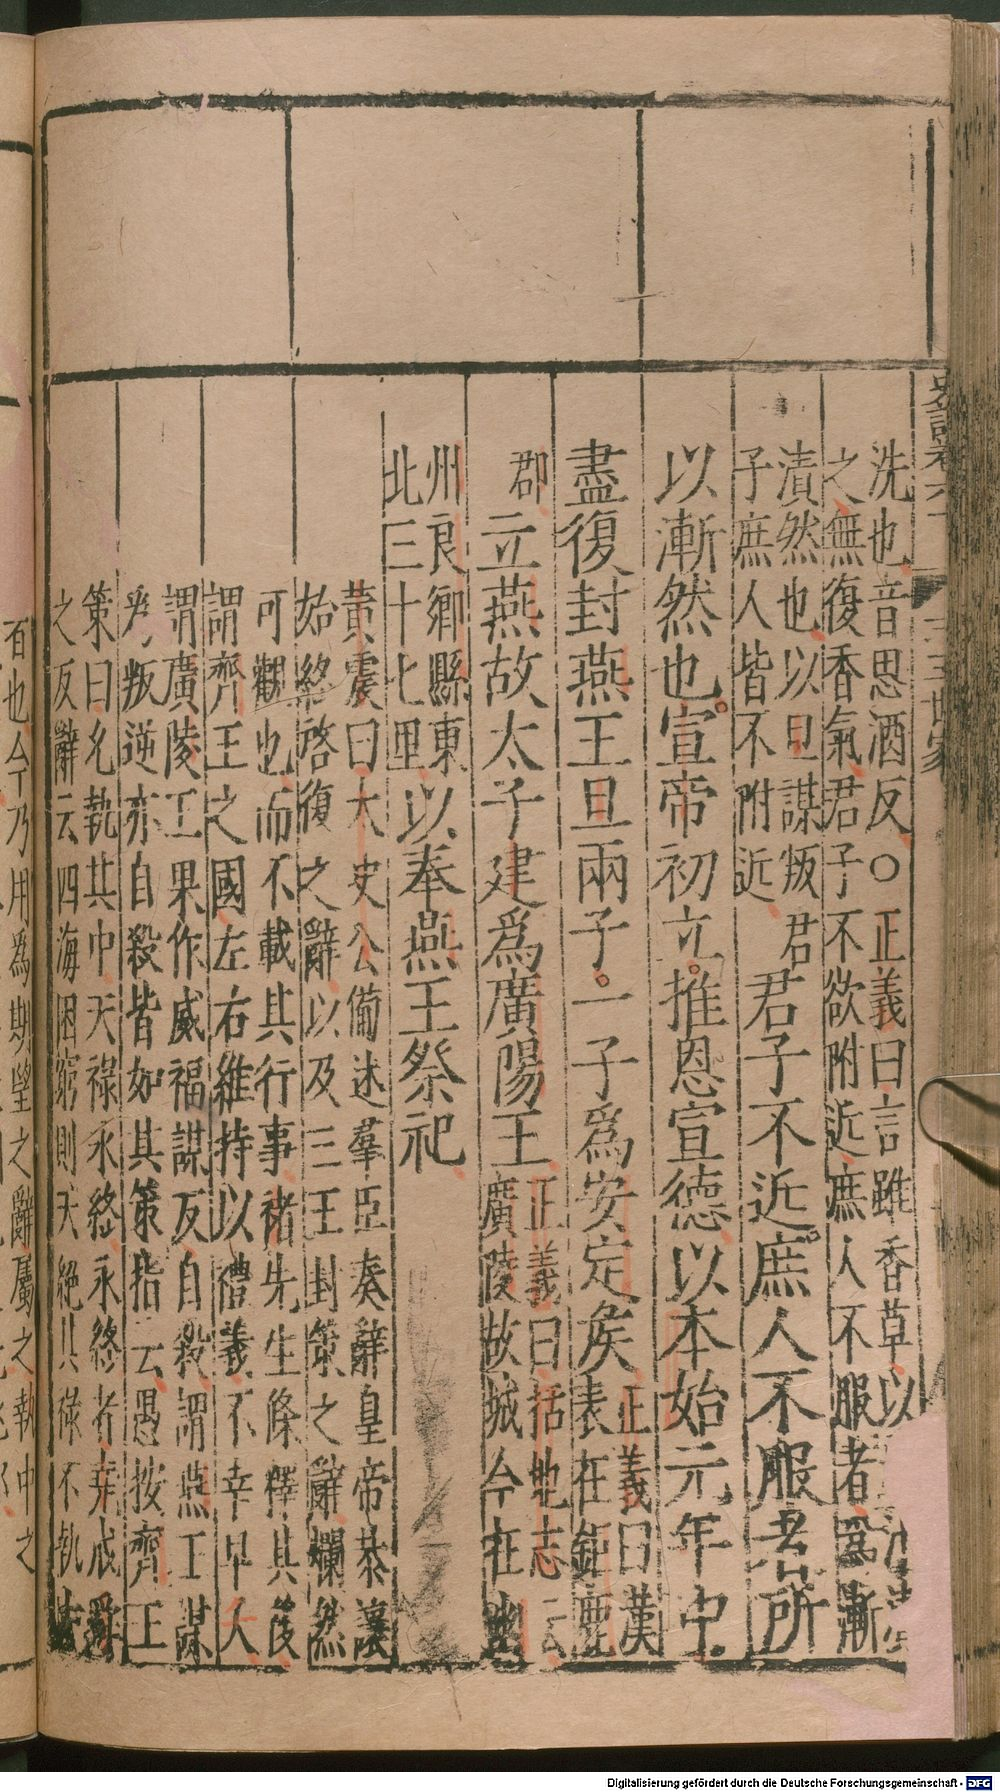 史記卷六十 三王世家
洗也音思酒反○正義曰言雖香草以
之無復香氣君子不欲附近庶人不服者為漸
漬然也以旦謀叛君
子庶人皆不附近
君子不近庶人不服者所
以漸然也宣帝初立推恩宣德以本始元年中
盡復封燕王旦兩子一子為安定侯
正義曰漢
表在鉅鹿
郡
立燕故太子建為廣陽王
正義曰括地志云
廣陵故城今在幽
州良鄉縣東
北三十七里
以奉燕王祭祀
黃震曰太史公備述羣臣奏辭皇帝恭讓
始終啓復之辭以及三王封策之辭爛然
可觀也而不載其行事褚先生條釋其後
謂齊王之國左右維持以禮義不幸早夭
謂廣陵王果作威福謀反自殺謂燕王謀
為叛逆亦自殺皆如其策指云愚按齊王
策曰允執其中天祿永終永終者
之反辭云四海困窮則天絕其祿不執
百也今乃用為期望之辭屬之執中之
Digitalisierung gefördert durch die Deutsche Forschungsgemeinschaft - DFG